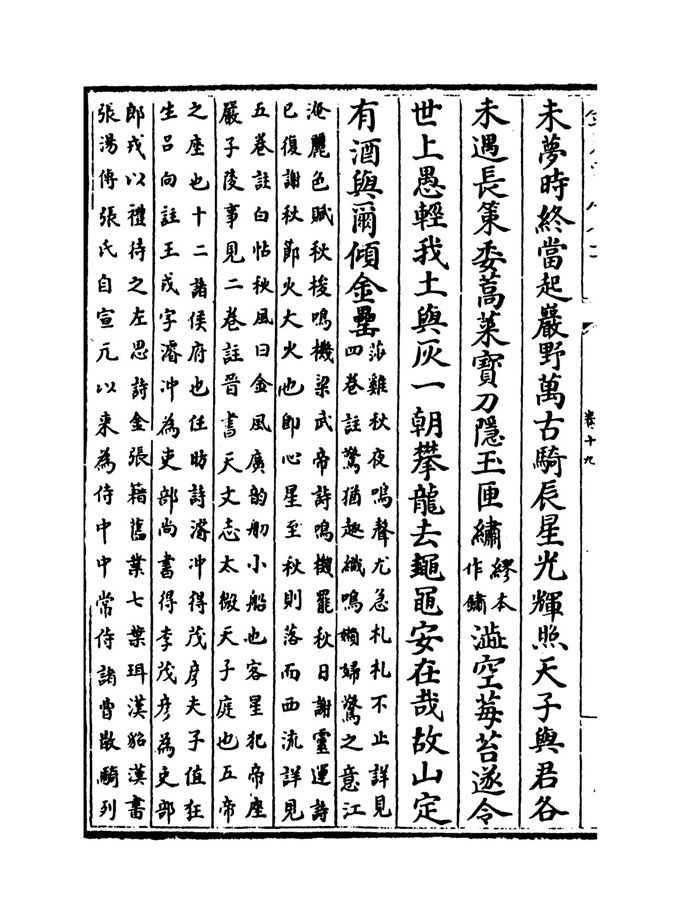 未夢時終當起巖野萬古騎辰星光輝照天子與君各
未遇長策委蒿萊寶刀隱玉匣繡繆本作鏽澁空莓苔遂令
世上愚輕我土與灰一朝攀龍去鼃黽安在哉故山定
有酒與爾傾金罍莎雞秋夜鳴聲尤急札札不止詳見
四卷註驚猶趣織鳴懶婦驚之意江
淹麗色賦秋梭鳴機梁武帝詩鳴機罷秋日謝靈運詩
已復謝秋節火大火也即心星至秋則落而西流詳見
五卷註白帖秋風曰金風廣韵舠小船也客星犯帝座
嚴子陵事見二卷註晉書天文志太微天子庭也五帝
之座也十二諸侯府也任昉詩濬冲得茂彥夫子值狂
生呂向註王戎字濬冲為吏部尚書得李茂彥為吏部
郎戎以禮待之左思詩金張籍舊業七葉珥漢貂漢書
張湯傳張氏自宣元以來為侍中中常侍諸曹散騎列
卷十九